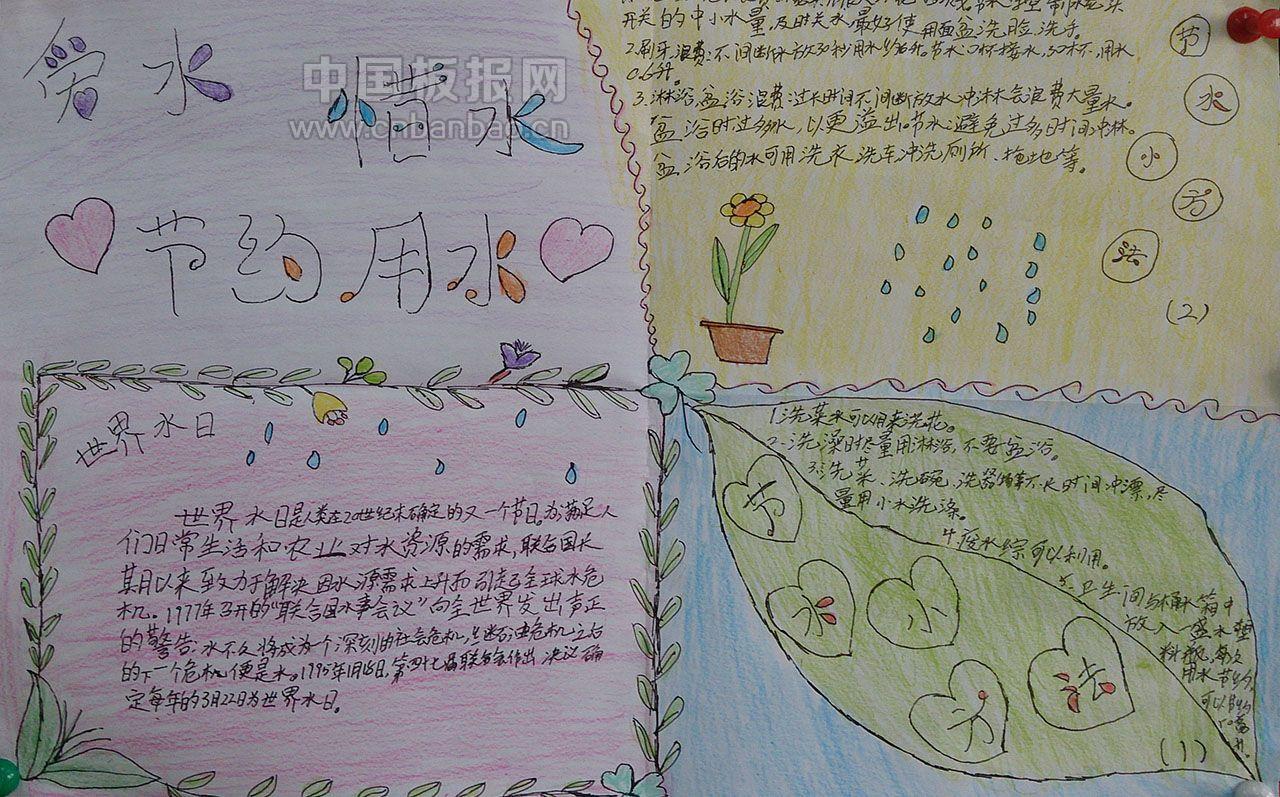 爱水
惜水
节约用水
中国板报网
www.chbanbao.cn
开关的中小水量,及时关水最好使用面盆洗脸、洗手。
2.刷牙浪费:不间断放水30秒用水
节水:口杯接水,
0.6升。
3.淋浴、盆浴浪费过长时间不间断放水冲淋会浪费大量水。
盆浴时过多水,以更溢出。节水:避免过多时间冲淋。
盆浴后的水可用洗衣、洗车冲洗厕所、拖地等。
节
水
小
方
法
(2)
世界水日
世界水日是人类在20世纪末确定的又一个节日。为满足人
们日常生活和农业对水资源的需求,联合国长
期以来致力于解决因水源需求上升而引起全球水危
机。1977年召开的“联合国水事会议”向全世界发出严正
的警告:水不久将成为一个深刻的社会危机,
的下一个危机便是水。
定每年的3月22日为世界水日。
1.洗菜水可以用来浇花。
2.洗澡时尽量用淋浴,不要盆浴。
3.洗菜、洗碗、洗器物等不长时间冲漂,尽
量用小水洗涤。
4.废水综可以利用。
5.卫生间
水箱中
放入一盛水塑
料瓶,每次
用水节约,
可以
节
水
小
方
法
(1)